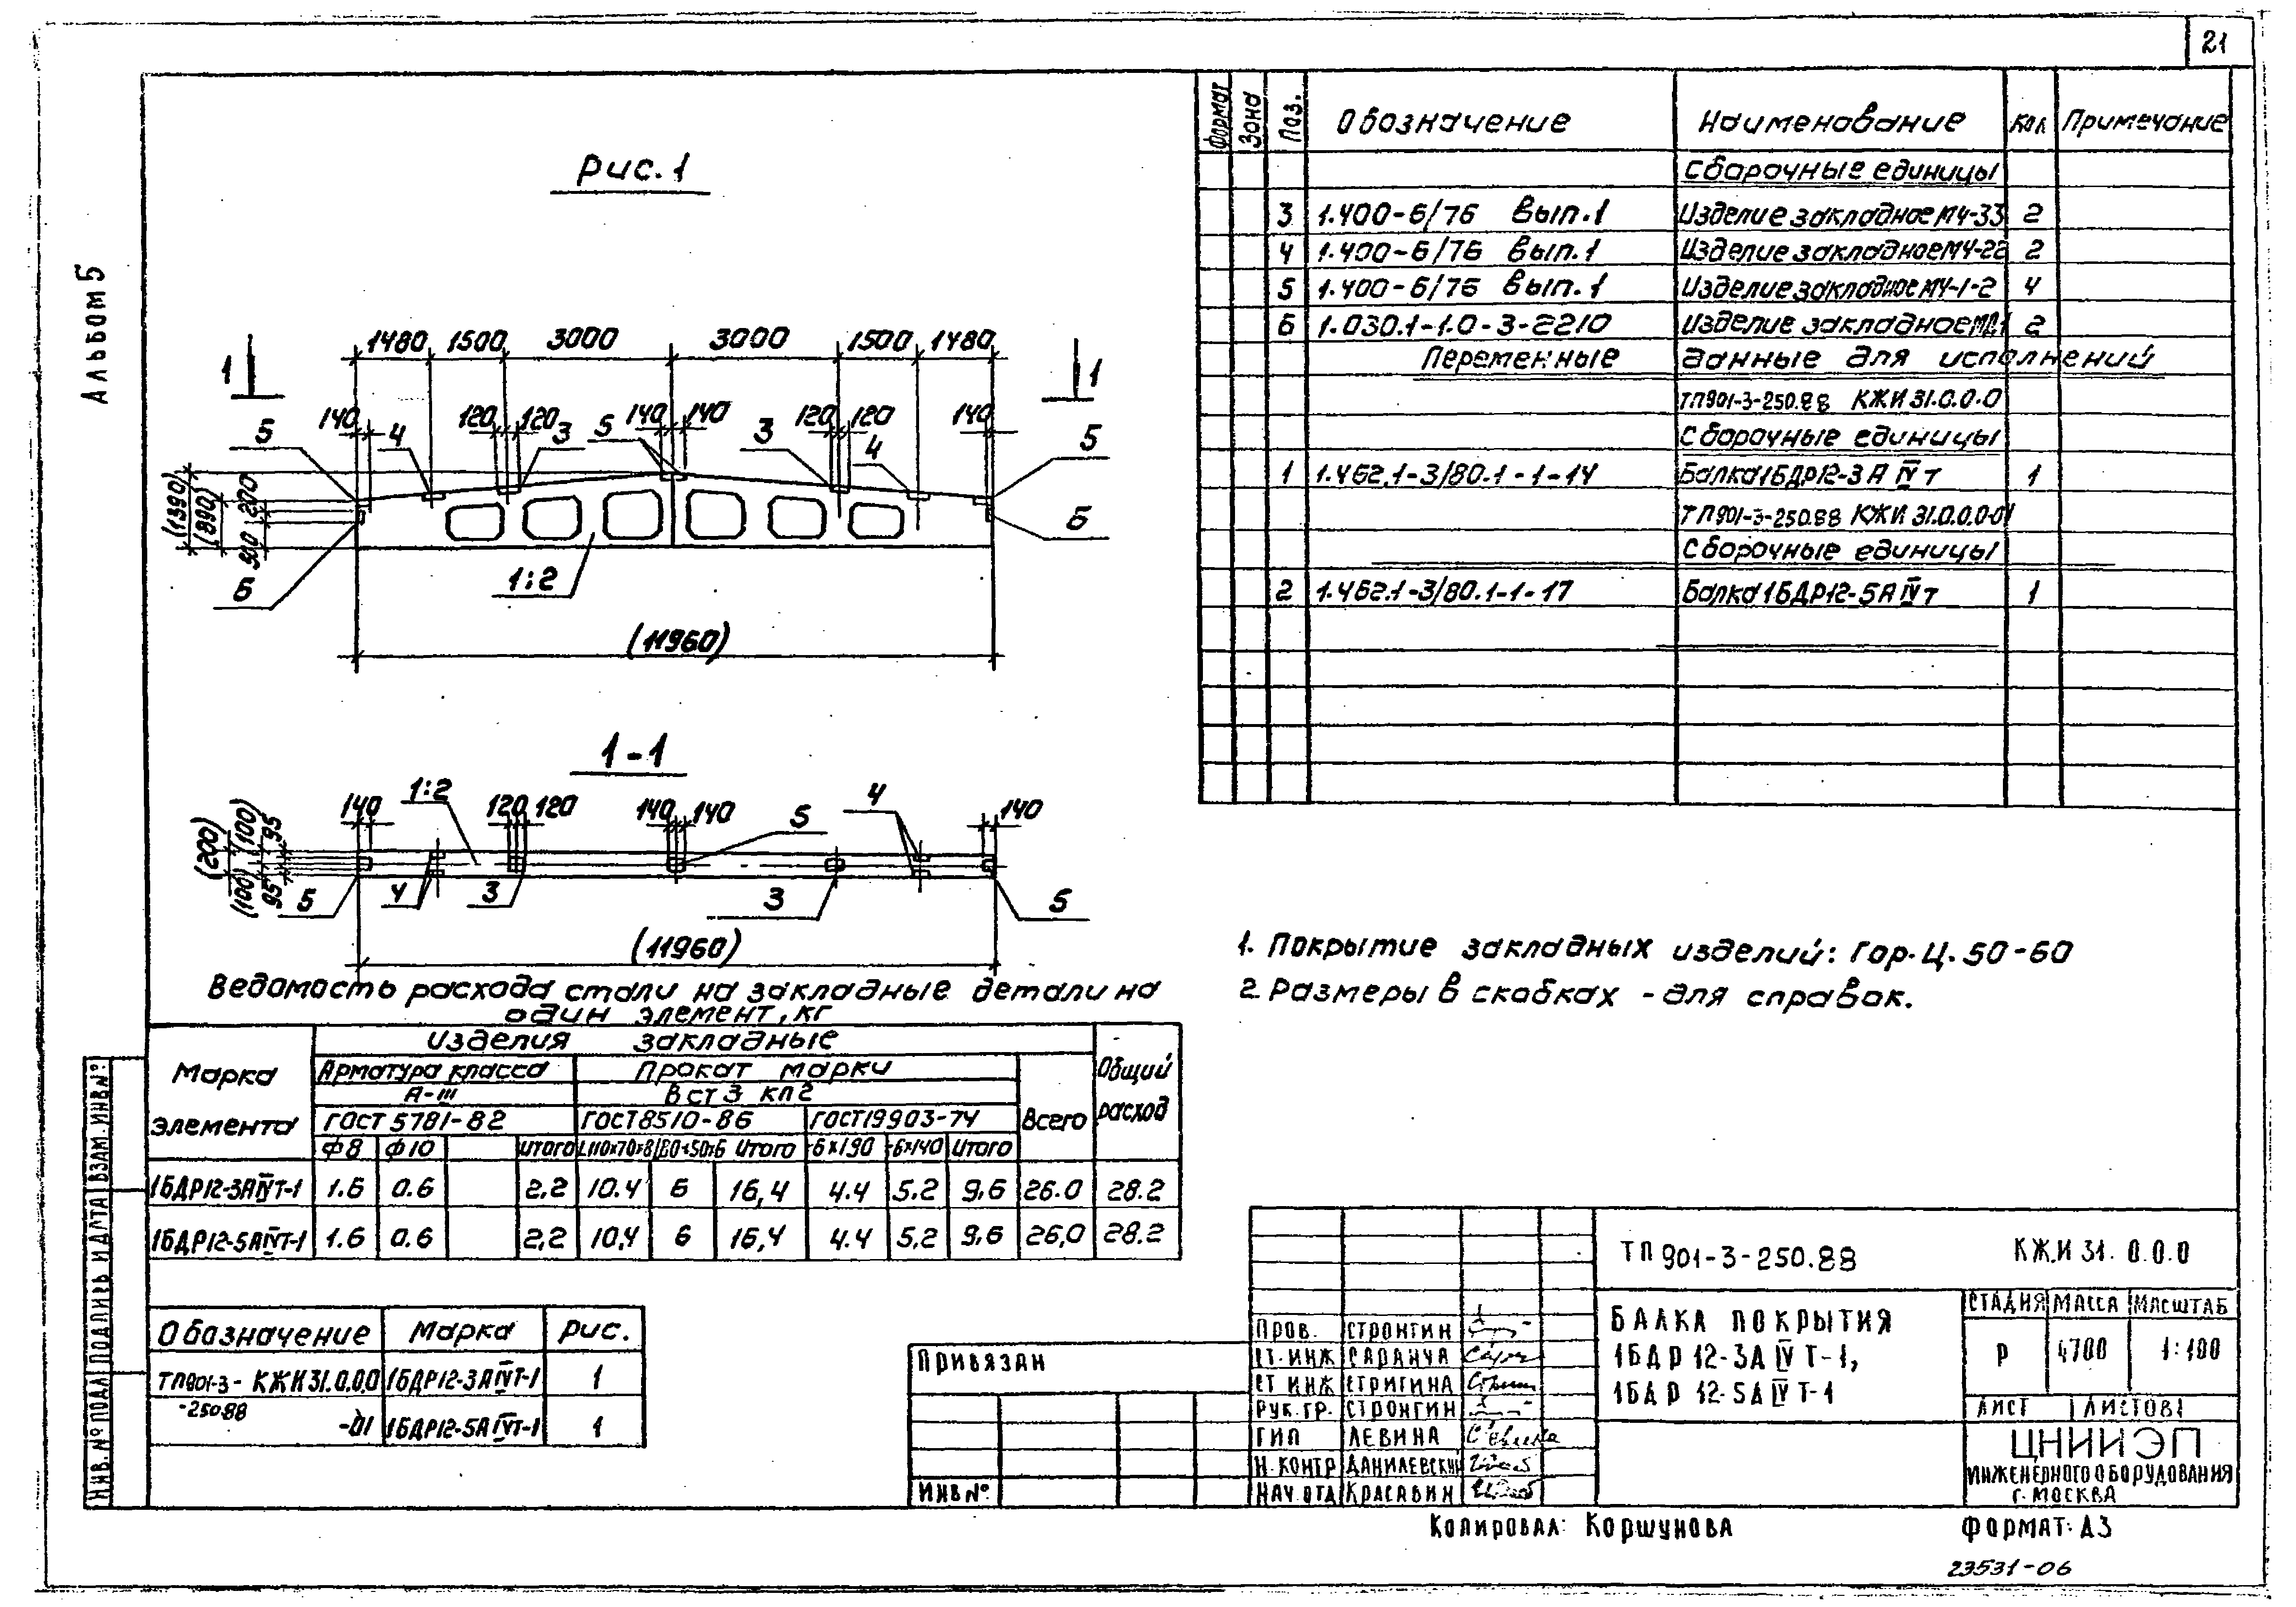 21
Альбом 5
Рис. 1
1480 1500 3000 3000 1500 1480
1 1
140 120 120 140 140 120 120 140
5 4 3 5 3 4 5
(1390) (890) 200 500
6 6
1:2
(11960)
1-1
140 1:2 120 120 140 140 5 4 140
(200) (100) (100) 95 95
5 4 3 3 5
(11960)
Формат Зона Поз. Обозначение Наименование Кол Примечание
Сборочные единицы
3 1.400-6/76 Вып.1 Изделие закладное МЧ-33 2
4 1.400-6/76 Вып.1 Изделие закладное МЧ-22 2
5 1.400-6/76 Вып.1 Изделие закладное МЧ-1-2 4
6 1.030.1-1.0-3-2210 Изделие закладное 2
Переменные данные для исполнений
ТП901-3-250.88 КЖИ 31.0.0.0
Сборочные единицы
1 1.462.1-3/80.1-1-14 Балка 1БДР12-3А IV т 1
ТП901-3-250.88 КЖИ 31.0.0.0-01
Сборочные единицы
2 1.462.1-3/80.1-1-17 Балка 1БДР12-5А IV т 1
1. Покрытие закладных изделий: Гор.Ц.50-60
2. Размеры в скобках - для справок.
Ведомость расхода стали на закладные детали на
один элемент, кг
Марка элемента Изделия закладные Общий расход
Арматура класса Прокат марки Всего
А-III ВСт3 кп2
ГОСТ 5781-82 ГОСТ 8510-86 ГОСТ 19903-74
Ф8 Ф10 Итого L110х70х8 L80х50х6 Итого -6х190 -6х140 Итого
1БДР12-3АIVТ-1 1.6 0.6 2,2 10.4 6 16,4 4.4 5.2 9,6 26.0 28.2
1БДР12-5АIVТ-1 1.6 0.6 2,2 10,4 6 16,4 4.4 5,2 9,6 26,0 28.2
Обозначение Марка Рис.
ТП901-3- КЖИ31.0.0.0 1БДР12-3АIVТ-1 1
-250.88
-01 1БДР12-5АIVТ-1 1
Инв.№ подл Подпись и дата Взам.инв№
Привязан
Инв№
Пров. Стронгин
Ст.инж Саранча
Ст инж Стригина
Рук.гр. Стронгин
ГИП Левина
Н.контр Данилевский
Нач.отд Красавин
ТП 901-3-250.88 КЖ.И 31. 0.0.0
БАЛКА ПОКРЫТИЯ
1БДР 12-3А IV Т-1,
1БДР 12-5А IV Т-1
СТАДИЯ МАССА МАСШТАБ
Р 4700 1:100
ЛИСТ ЛИСТОВ 1
ЦНИИЭП
ИНЖЕНЕРНОГО ОБОРУДОВАНИЯ
Г. МОСКВА
Копировал: Коршунова Формат: А3
23531-06